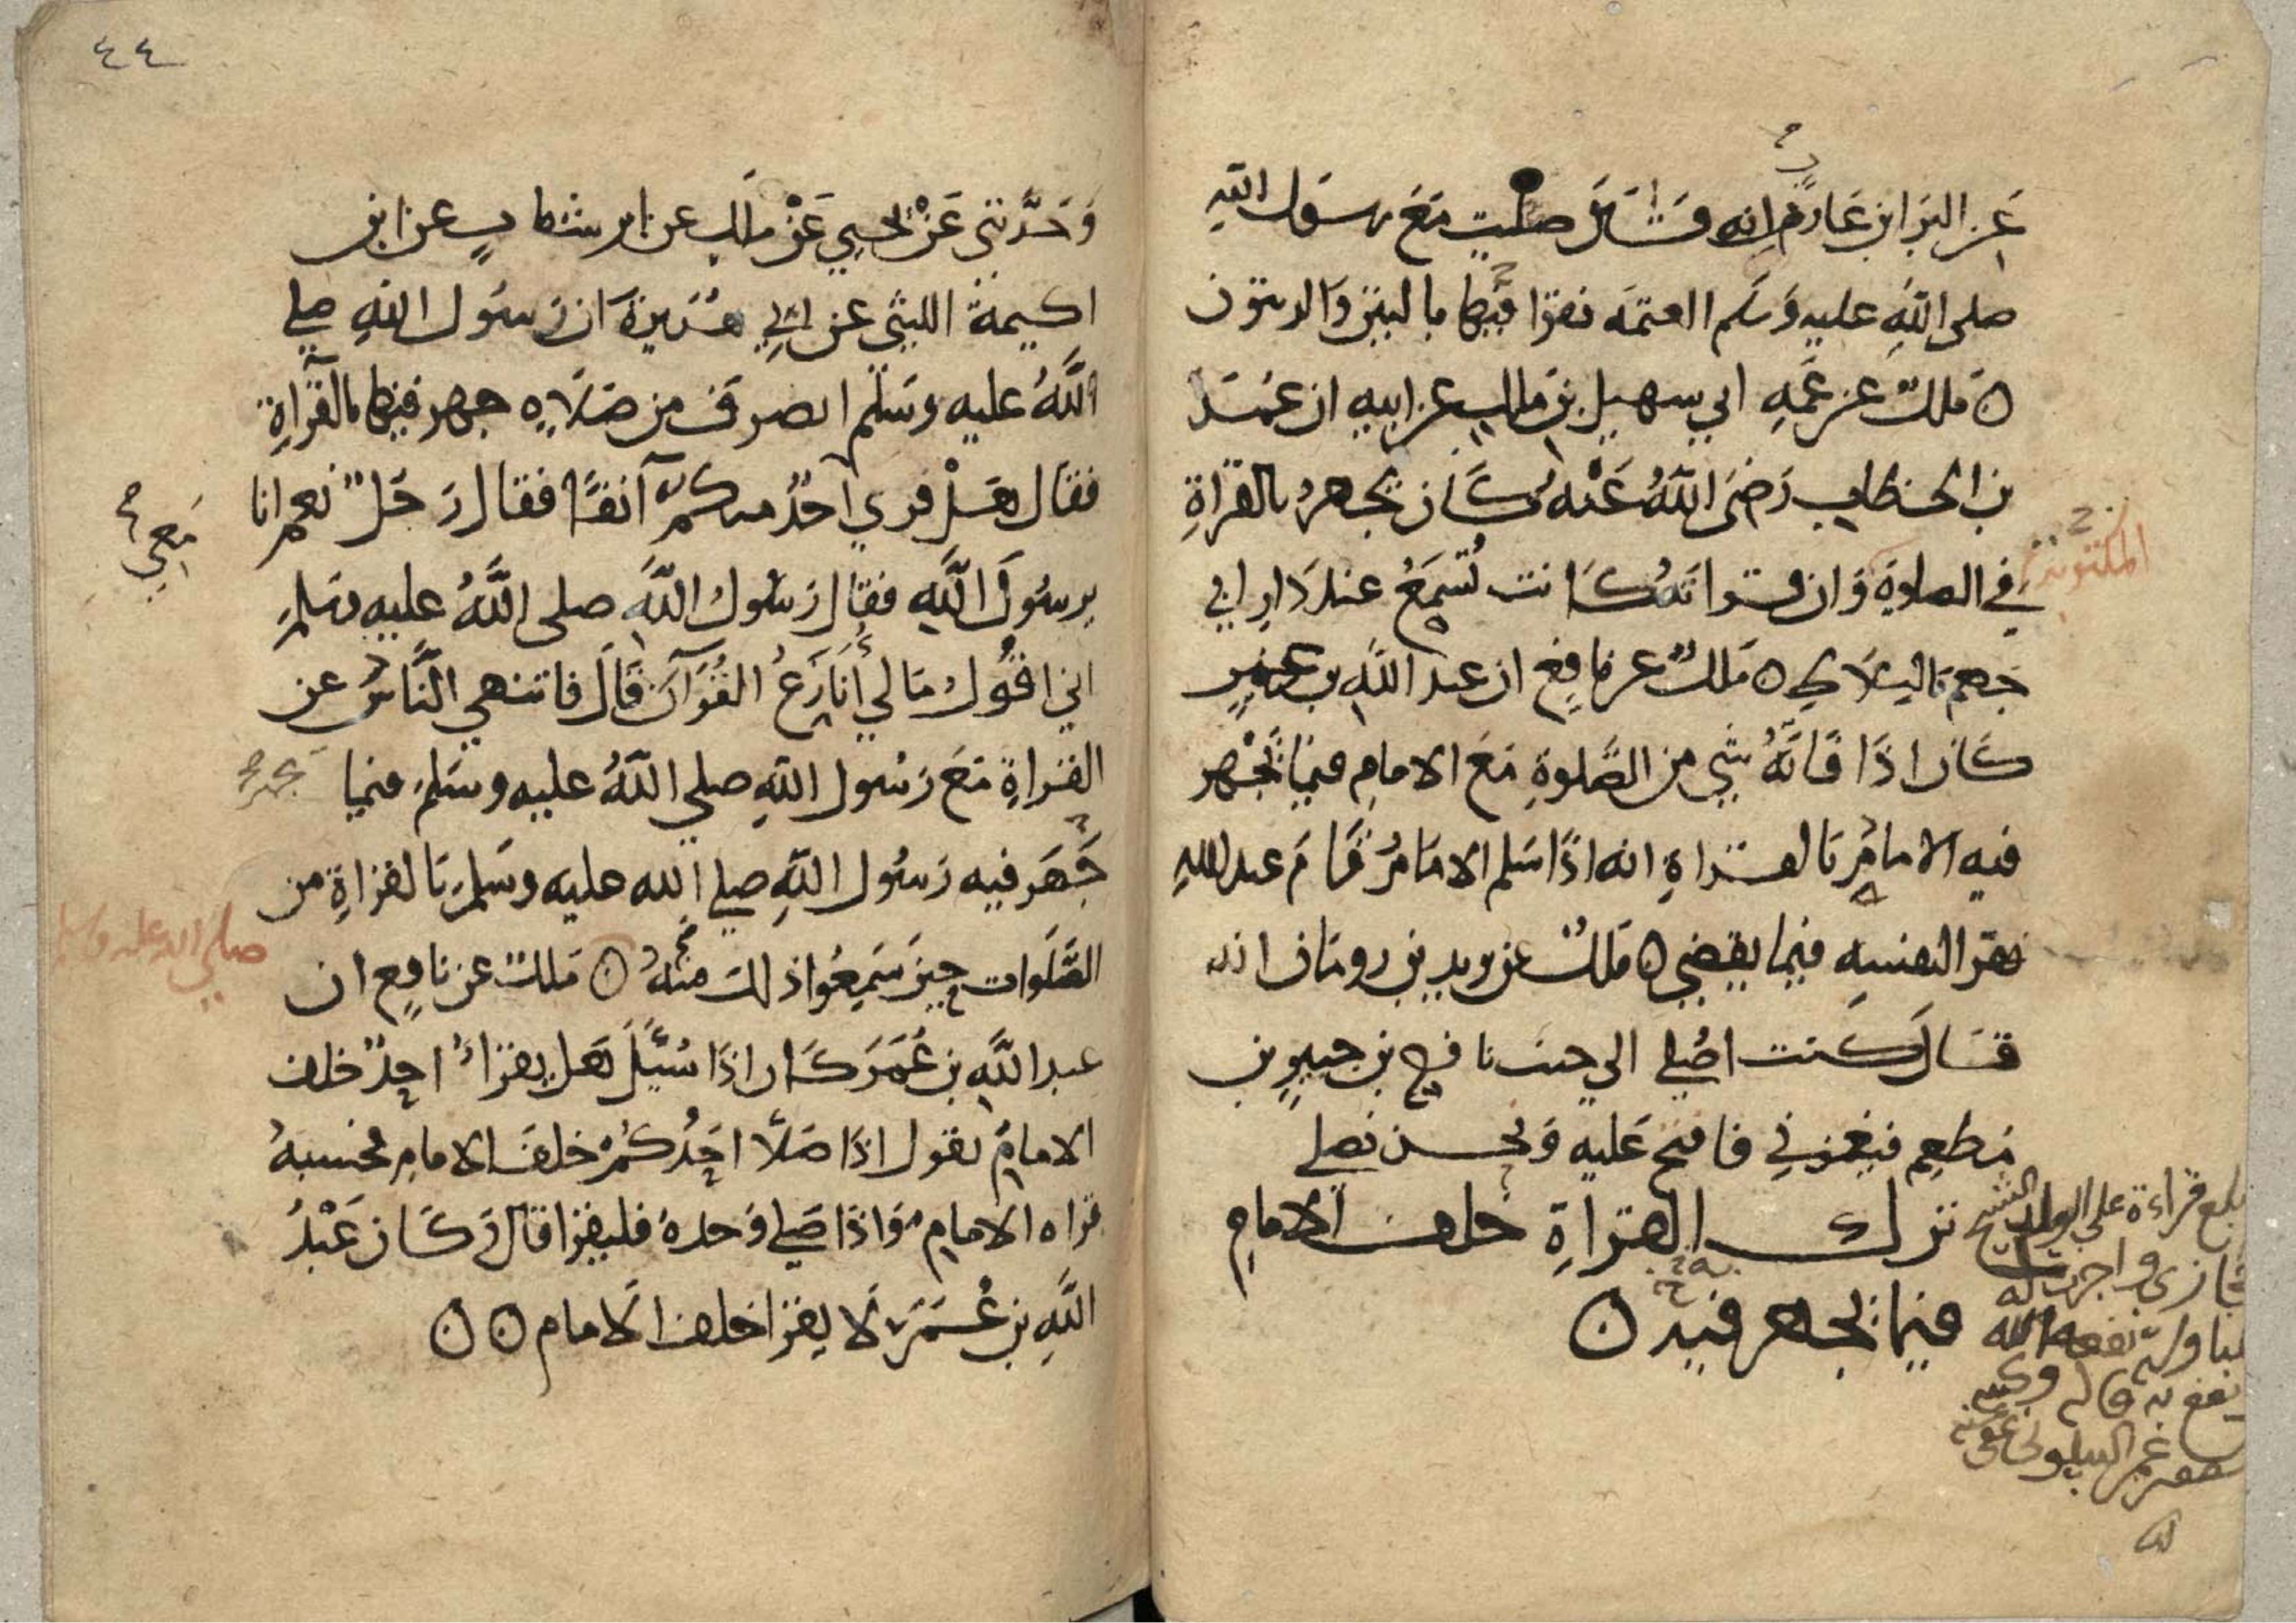 عن البرا بن عازم انه قال صليت مع رسول الله
صلى الله عليه وسلم العتمه فقرا فيها بالتين والزيتون
ملك عن عمه ابي سهيل بن ملك عن ابيه ان عمر
بن الخطاب رضى الله عنه كان يجهر بالقراة
المكتوبة
في الصلوة وان قراته كانت تسمع عند دار ابي
جهم بالبلاط ملك عن نافع ان عبد الله بن عمر
كان اذا فاته شي من الصلوة مع الامام فيما يجهر
فيه الامام بالقراة انه اذا سلم الامام قام عبد الله
فقرا لنفسه فيما يقضي ملك عن يزيد بن رومان انه
قال كنت اصلي الى جنب نافع بن جبير بن
مطعم فيغمزني فافتح عليه ونحن نصلي
ترك القراة خلف الامام
فيما يجهر فيه
بلغ قراءة على الولد الشيخ
واجزت له
نفعه الله
٤٤
وحدثنى عن يحيي عن ملك عن ابن شهاب عن ابن
اكيمة الليثي عن ابي هريرة ان رسول الله صلي
الله عليه وسلم انصرف من صلاه جهر فيها بالقراة
فقال هل قري احد منكم آنفا فقال رجل نعم انا
معي
يرسول الله فقال رسول الله صلى الله عليه وسلم
اني اقول ما لي أنازع القرآن قال فانتهي الناس عن
القراة مع رسول الله صلي الله عليه وسلم فيما
جهر فيه رسول الله صلي الله عليه وسلم بالقراة من
صلى الله عليه وسلم
الصلوات حين سمعوا ذلك منه ملك عن نافع ان
عبد الله بن عمر كان اذا سئل هل يقرا احد خلف
الامام يقول اذا صلا احدكم خلف الامام فحسبه
قراه الامام واذا صلي وحده فليقرا قال وكان عبد
الله بن عمر لا يقرا خلف الامام